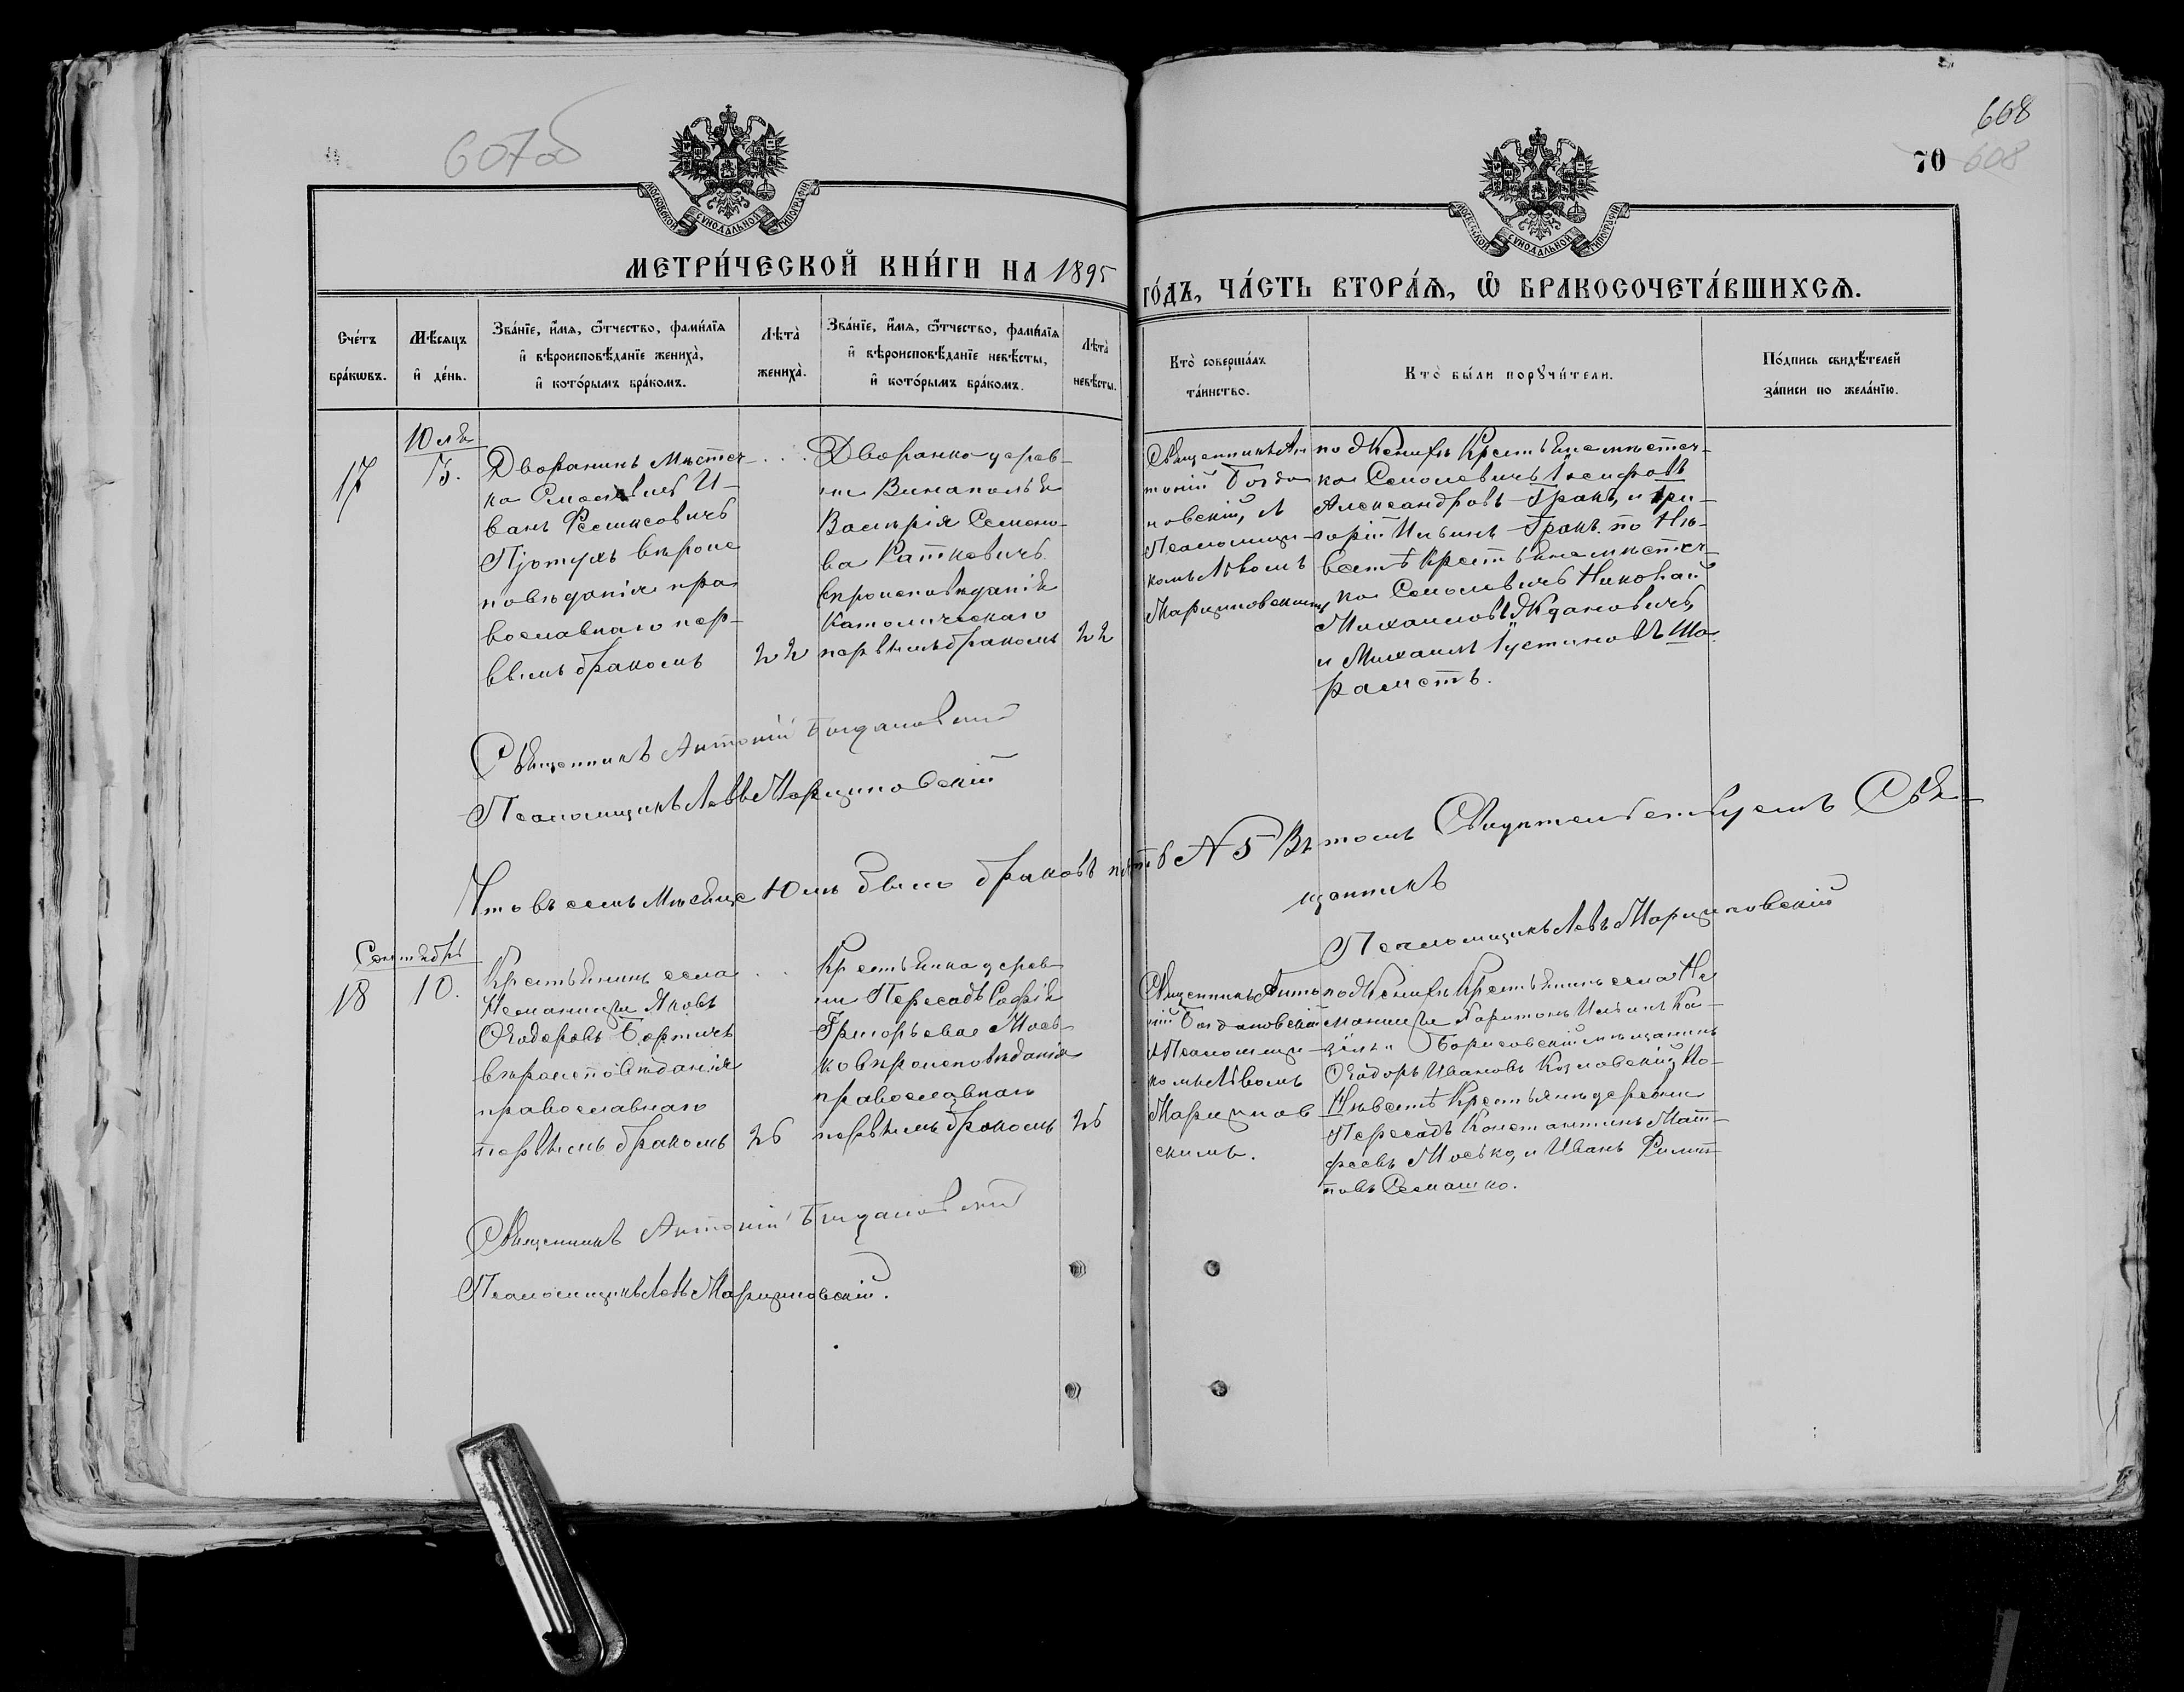 607об
608
70 608
МОСКОВСКОЙ СѴНОДАЛЬНОЙ ТИПОГРАФІИ
МОСКОВСКОЙ СѴНОДАЛЬНОЙ ТИПОГРАФІИ
МЕТРИ́ЧЕСКОЙ КНИ́ГИ НА 1895
ГО́ДЪ, ЧА́СТЬ ВТОРА́Я, Ѡ БРАКОСОЧЕТА́ВШИХСЯ.
Сче́тъ
бра́кѡвъ.
Мѣ́сяцъ
и де́нь.
Зва́нїе, и́мя, ѻ́тчество, фами́лїя
и вѣроисповѣ́данїе жениха̀,
и кото́рымъ бра́комъ.
Лѣта̀
жениха̀.
Зва́нїе, и́мя, ѻ́тчество, фами́лїя
и вѣроисповѣ́данїе невѣ́сты,
и кото́рымъ бра́комъ.
Лѣта̀
невѣ́сты.
Кто̀ соверша́лъ
та́инство.
Кто̀ бы́ли порꙋчи́тели.
По́дпись свидѣ́телей
за́писи по жела́нїю.
17
Юля
Дворанинъ Мѣстеч-
ка Смолевичъ И-
ванъ
вѣроис
повѣданія пра
вославнаго пер-
вымъ бракомъ
22
Дворанка дерев-
ни
Валѣрія Семено-
ва Раткевичъ
вѣроисповѣданія
Католическаго
первымъ бракомъ
22
Священникъ Ан
тоній Богда
новскій, съ
Псаломщи-
комъ Львомъ
Марциновскимъ
по Женихѣ Крестьяне мѣстеч-
ка Смолевичъ Іосифъ
Александровъ Гракъ, и Гри-
горій Ильинъ Гракъ. по Не-
вестѣ Крестьяне мѣстеч-
ка Смолевичъ Николай
Михаиловъ Ждановичъ,
и Михаилъ Іустиновъ Ша-
раметъ.
Священникъ Антоній Богдановскій
Псаломщикъ Левъ Марциновскій
Что въ семъ Мѣсяце Юлѣ было браковъ пять № 5 Въ томъ Свидѣтельствуемъ Свя-
щенникъ
Псаломщикъ Левъ Марциновскій
Сентябрь
18
10.
Крестьянинъ села
Неманицы Яковъ
Ѳеодоровъ Бортичъ
вѣроисповѣданія
православнаго
первымъ бракомъ
26
Крестьянка дерев
ни Пересадъ Софія
Григорьева Мось-
ко вѣроисповѣданія
православнаго
первымъ бракомъ
26
Священникъ Анто
ній Богдановскій
съ Псаломщи-
комъ Львомъ
Марцинов
скимъ.
по Женихѣ Крестьянинъ села Не
маницы Харитонъ Ильинъ Ка-
Борисовскій мѣщанинъ
Ѳеодоръ Ивановъ Козловскій, По-
Невестѣ Крестьяне деревни
Пересадъ Константинъ Мат-
феевъ Мосько, и Иванъ Филип-
повъ Семашко.
Священникъ Антоній Богдановскій
Псаломщикъ Левъ Марциновскій.